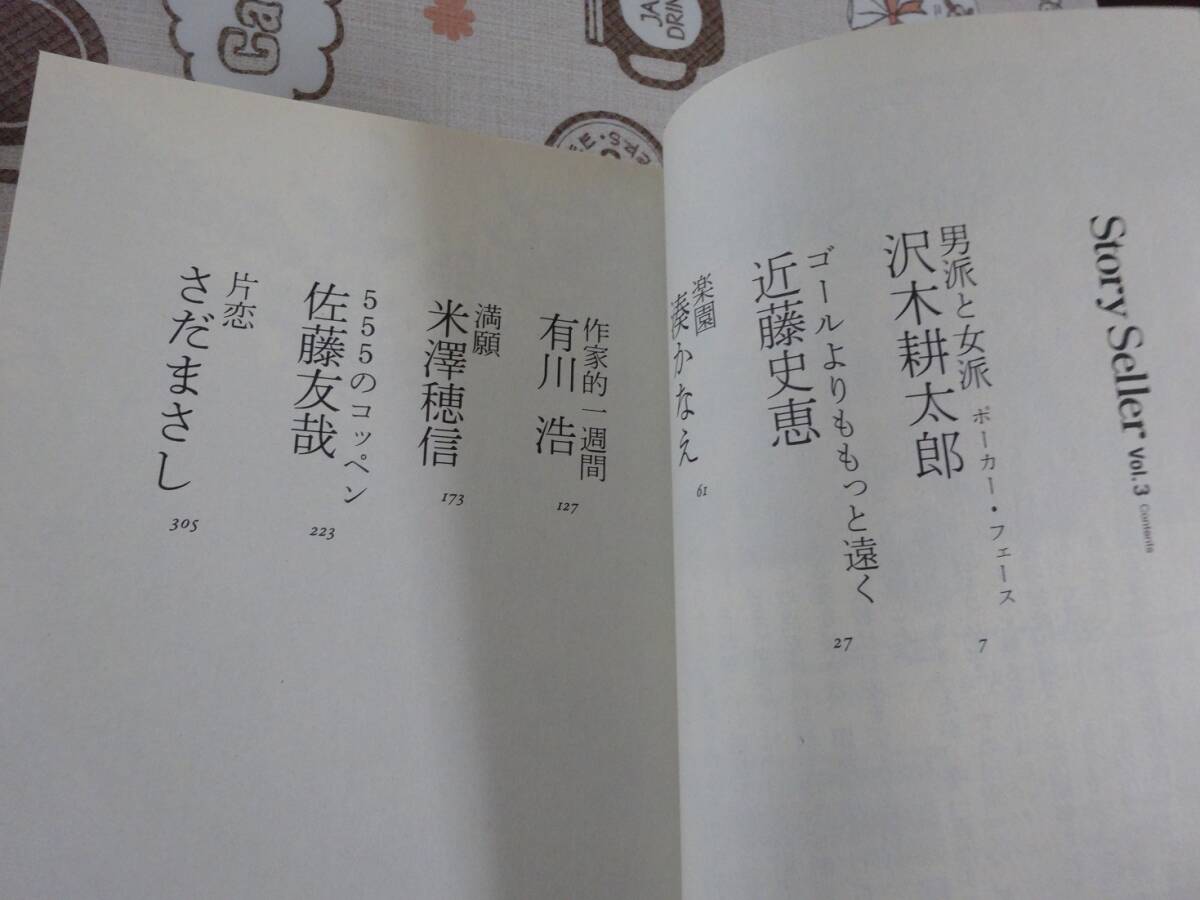 Story Seller Vol.3 Contents
男派と女派 ポーカー・フェース
沢木耕太郎
7
ゴールよりももっと遠く
近藤史恵
27
楽園
湊かなえ
61
作家的一週間
有川 浩
127
満願
米澤穂信
173
555のコッペン
佐藤友哉
223
片恋
さだまさし
305
Ca
JA
DRIN